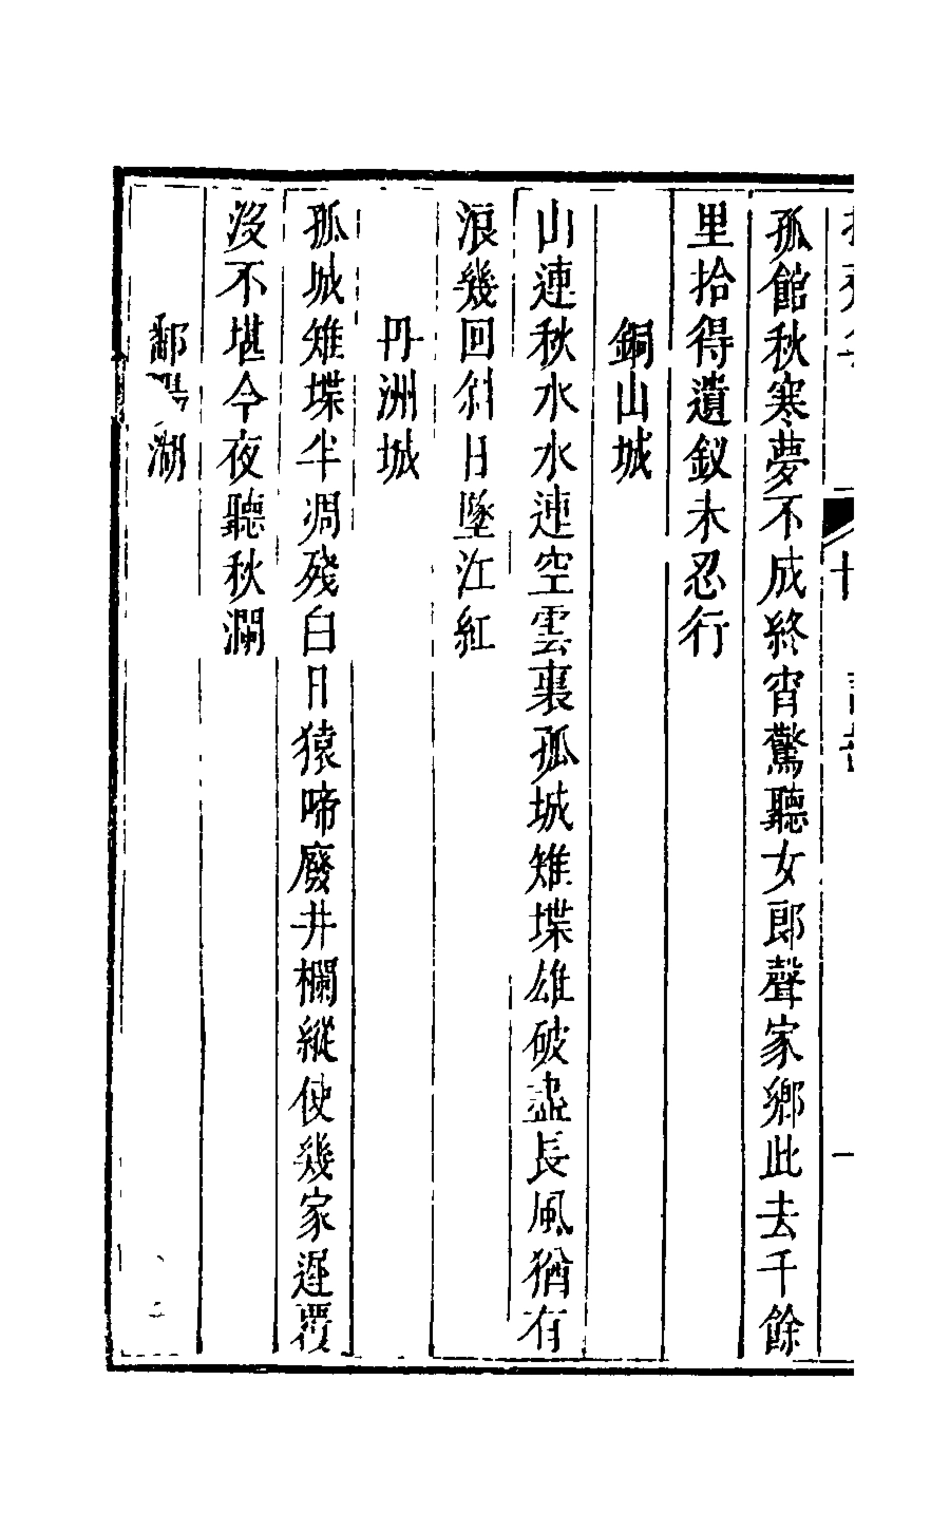 孤館秋寒夢不成終宵驚聽女郎聲家鄉此去千餘
里拾得遺釵未忍行
銅山城
山連秋水水連空雲裏孤城雉堞雄破盡長風猶有
浪幾回斜日墜江紅
丹洲城
孤城雉堞半凋殘白日猿啼廢井欄縱使幾家遲覆
沒不堪今夜聽秋瀾
鄱陽湖